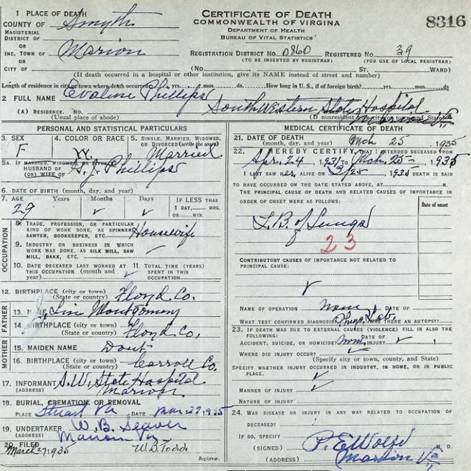 1 PLACE OF DEATH
COUNTY OF Smyth
CERTIFICATE OF DEATH
COMMONWEALTH OF VIRGINIA
8316
MAGISTERIAL DISTRICT OF
DEPARTMENT OF HEALTH
BUREAU OF VITAL STATISTICS
OR
INC. TOWN OF Marion
REGISTRATION DISTRICT NO. 0860 REGISTERED NO. 39
OR
CITY OF
(TO BE INSERTED BY REGISTRAR) (FOR USE OF LOCAL REGISTRAR)
ST. WARD)
(If death occurred in a hospital or other institution, give its NAME instead of street and number)
Length of residence in city or town where death occurred yrs. mos. ds. How long in U.S., if of foreign birth? yrs. mos. ds.
2 FULL NAME Evaline Phillips
(A) RESIDENCE. NO. Southwestern State Hospital
(Usual place of abode)
Marion Va
PERSONAL AND STATISTICAL PARTICULARS
MEDICAL CERTIFICATE OF DEATH
3. SEX F
4. COLOR OR RACE W
5. SINGLE, MARRIED, WIDOWED, OR DIVORCED (write the word) Married
21. DATE OF DEATH (month, day, and year) Mch 25 1935
22. I HEREBY CERTIFY, THAT I ATTENDED DECEASED FROM
Apr. 24 1931, TO Mch. 25 1935
5A. IF MARRIED, WIDOWED, OR DIVORCED
HUSBAND OF
(OR) WIFE OF G. J. Phillips
I LAST SAW HER ALIVE ON 3/25 1935 DEATH IS SAID
TO HAVE OCCURRED ON THE DATE STATED ABOVE, AT M.
THE PRINCIPAL CAUSE OF DEATH AND RELATED CAUSES OF IMPORTANCE IN
ORDER OF ONSET WERE AS FOLLOWS:
Date of onset
6. DATE OF BIRTH (month, day, and year)
7. AGE YEARS MONTHS DAYS IF LESS THAN
1 DAY, HRS.
OR MIN.
29
T.B. of Lungs
23
OCCUPATION
8. TRADE, PROFESSION, OR PARTICULAR
KIND OF WORK DONE, AS SPINNER,
SAWYER, BOOKKEEPER, ETC. Housewife
9. INDUSTRY OR BUSINESS IN WHICH
WORK WAS DONE, AS SILK MILL, SAW
MILL, BANK, ETC.
10. DATE DECEASED LAST WORKED AT
THIS OCCUPATION (MONTH
AND YEAR)
11. TOTAL TIME (YEARS)
SPENT IN THIS
OCCUPATION
CONTRIBUTORY CAUSES OF IMPORTANCE NOT RELATED TO
PRINCIPAL CAUSE:
12. BIRTHPLACE (City or town)
(State or country) Floyd Co.
FATHER
13. NAME Montgomery
14. BIRTHPLACE (City or town)
(State or country) Floyd Co,
NAME OF OPERATION None DATE OF
WHAT TEST CONFIRMED DIAGNOSIS? WAS THERE AN AUTOPSY?
23. IF DEATH WAS DUE TO EXTERNAL CAUSES (VIOLENCE) FILL IN ALSO THE
FOLLOWING:
ACCIDENT, SUICIDE, OR HOMICIDE? DATE OF INJURY 193
WHERE DID INJURY OCCUR?
(Specify city or town, county, and State)
MOTHER
15. MAIDEN NAME
16. BIRTHPLACE (City or town)
(State or country) Carroll Co.
SPECIFY WHETHER INJURY OCCURRED IN INDUSTRY, IN HOME, OR IN PUBLIC
PLACE.
17. INFORMANT S.W. State Hospital
(Address) Marion
MANNER OF INJURY
NATURE OF INJURY
18. BURIAL, CREMATION, OR REMOVAL
PLACE Stuart Va DATE Mar 27 1935
24. WAS DISEASE OR INJURY IN ANY WAY RELATED TO OCCUPATION OF
DECEASED?
IF SO, SPECIFY
19. UNDERTAKER W. B. Seaver
(Address) Marion Va
(SIGNED)
(ADDRESS) Marion Va
20. FILED March 27, 1935